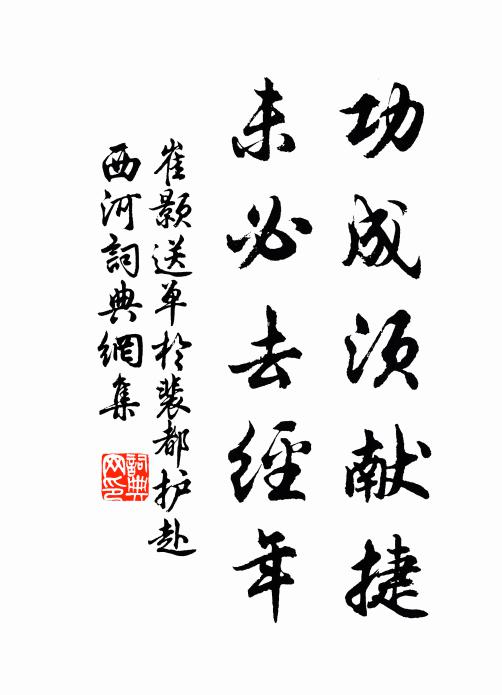 功成须献捷
未必去經年
崔颢送单于裴都护赴
西河詞典網集
詞典
网印